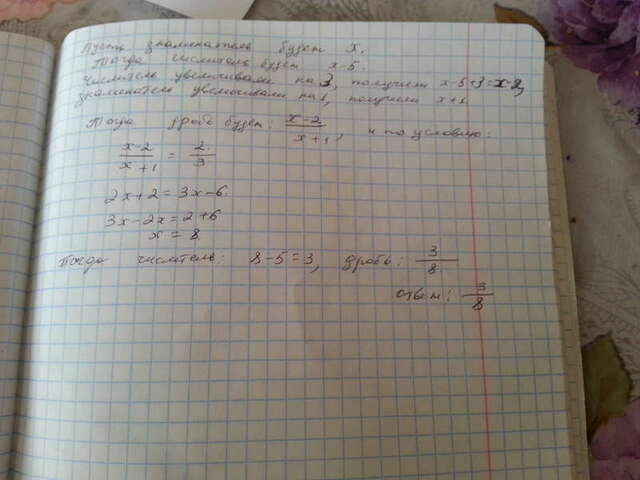 Пусть знаменатель будет x.
Тогда числитель будет x-5.
Числитель увеличиваем на 3, получим x-5+3=x-2,
знаменатель увеличиваем на 1, получим x+1.
Тогда дробь будет: x-2/x+1, и по условию:
x-2/x+1 = 2/3
2x+2=3x-6.
3x-2x=2+6
x=8
Тогда числитель: 8-5=3, дробь: 3/8
ответ: 3/8